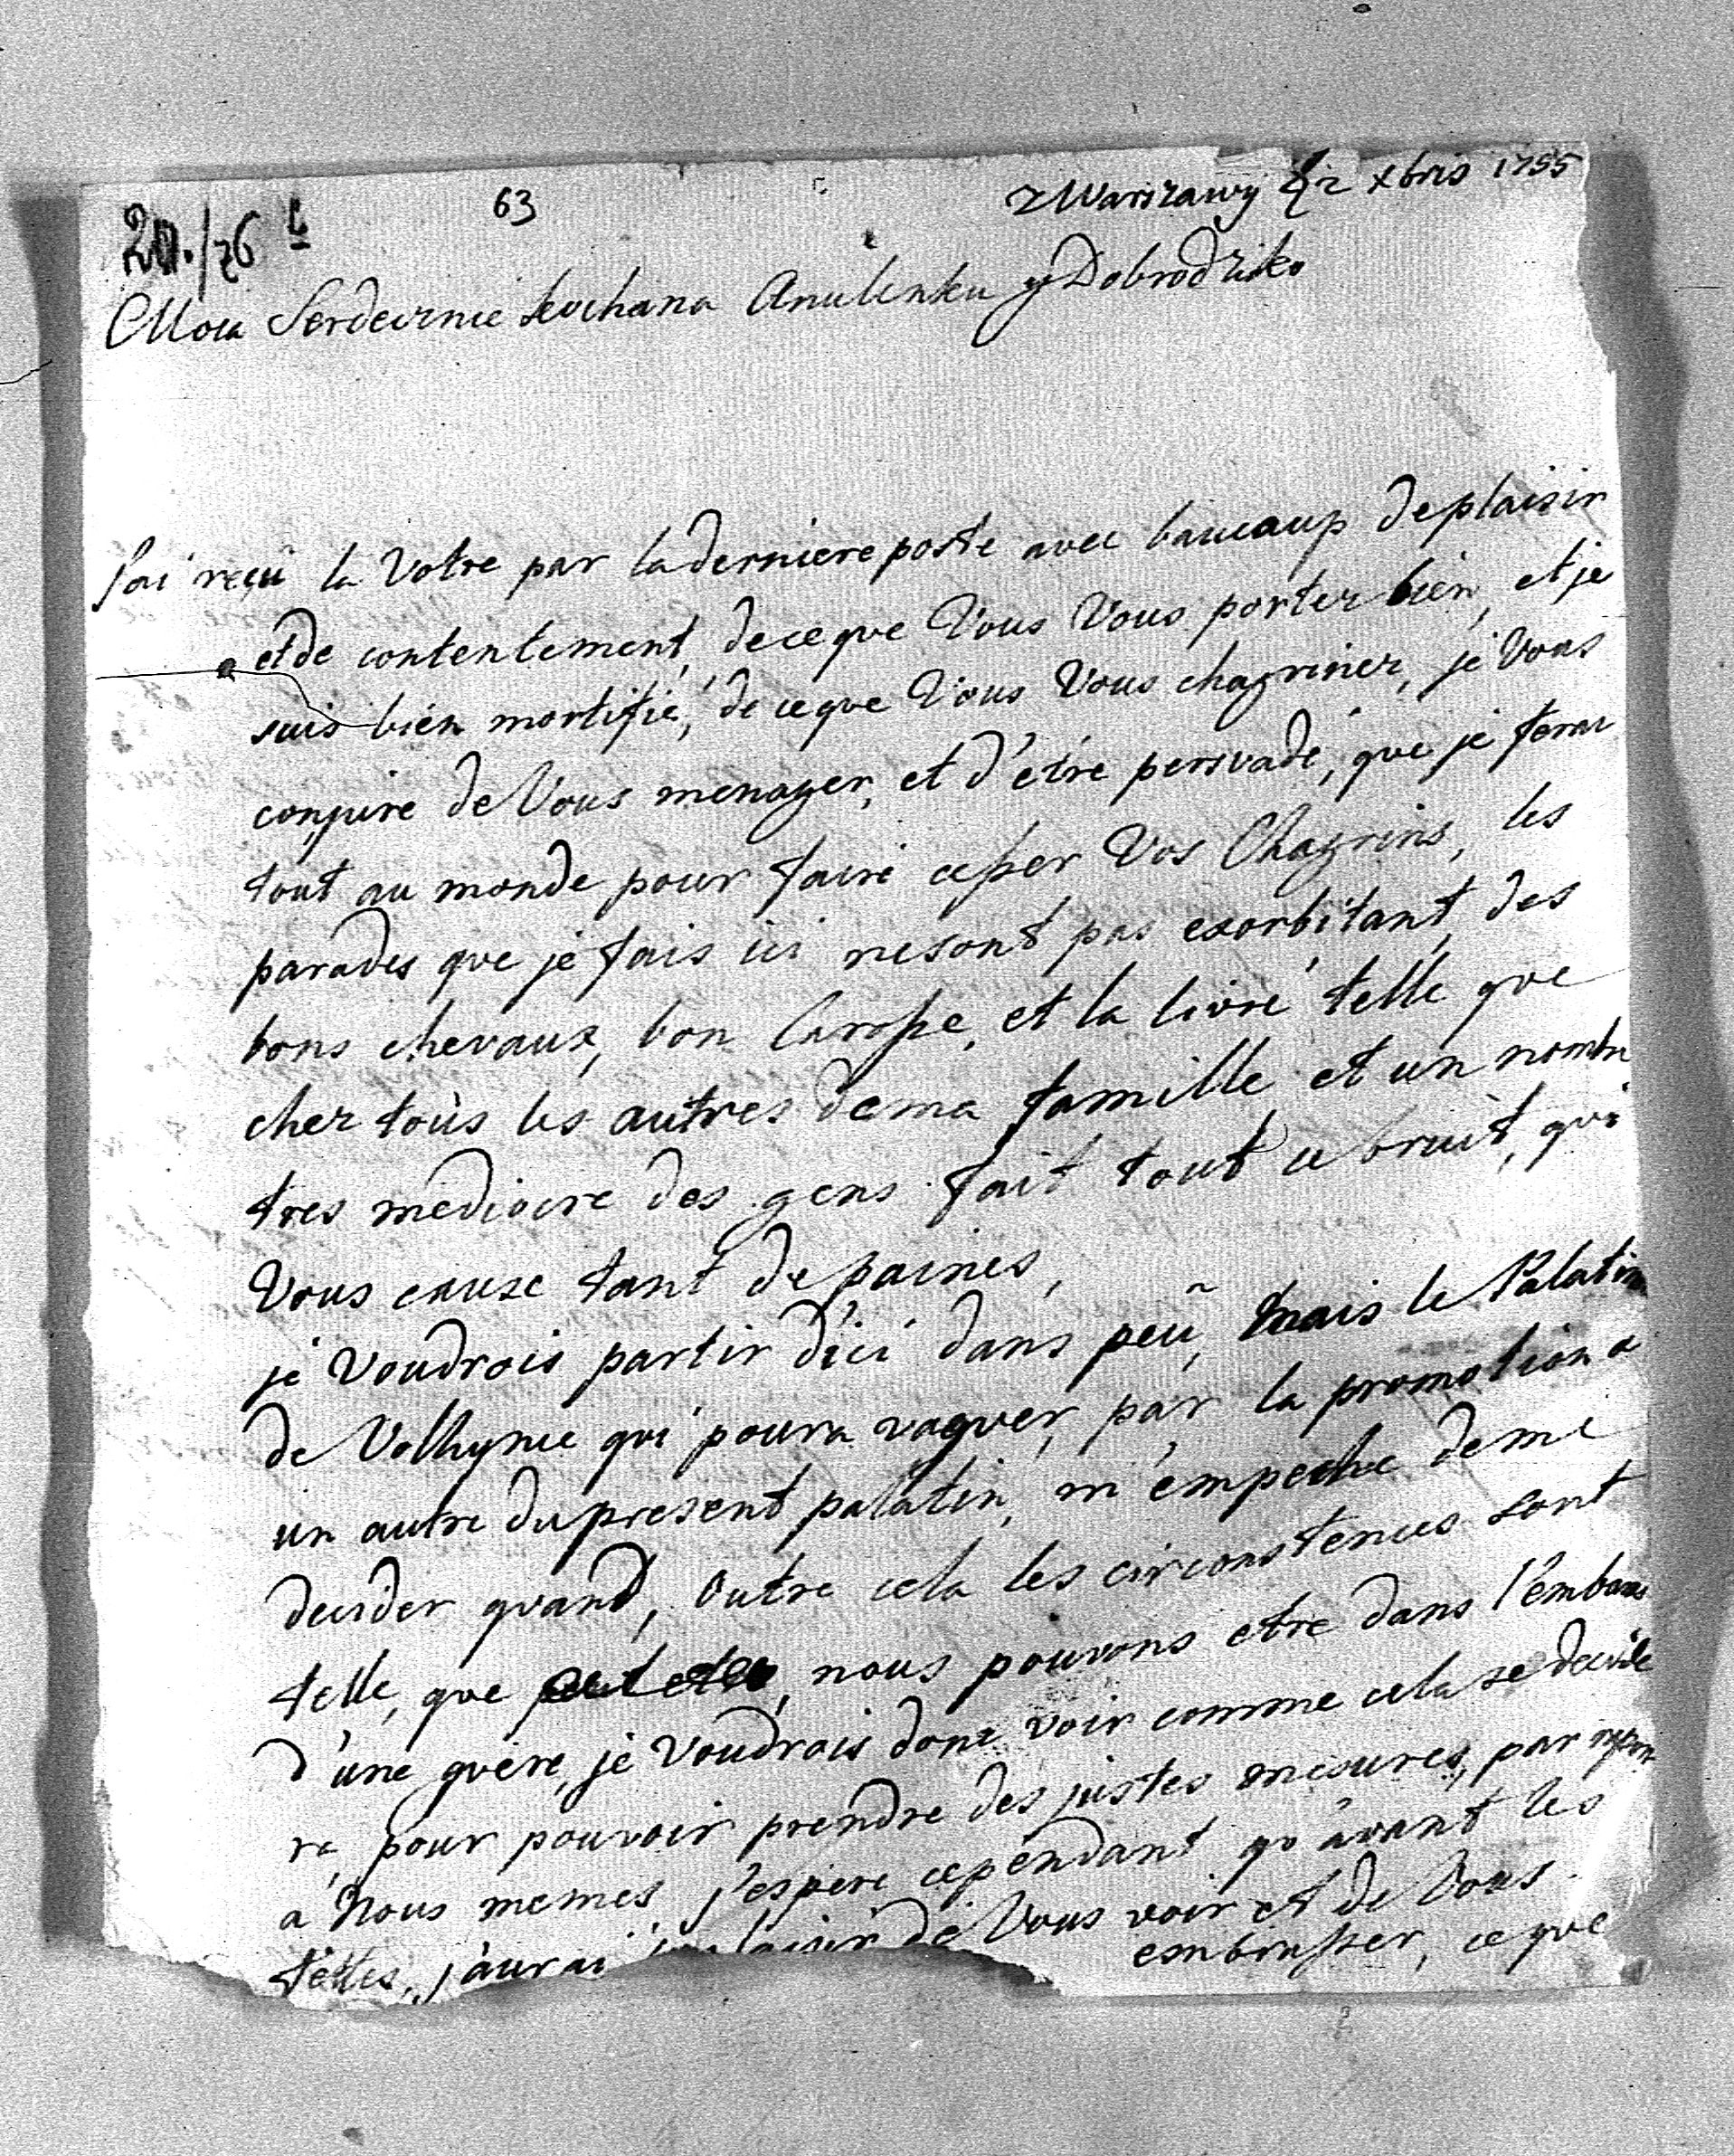 63
z Warszawy 2 xbris 1755
Moia Serdecznie kochana Anulenku y Dobrodziko
J'ai reçû la Votre par la derniere poste avec baucaup de plaisir
et de contentement, de ce que Vous Vous porter bien, et je
suis bien mortifié, de ce que Vous Vous chagriner, je Vous
conjure de Vous menager, et d'etre persvadé, que je ferai
tout au monde pour faire cesser Vos Chagrins, les
parades que je fais ici ne sont pas exorbitant, des
bons chevaux, bon Carosse, et la livré telle que
cher tous les autres de ma famille, et un nombre
tres mediocre des gens fait tout ce bruit, qui
Vous cause tant de paines,
je Voudrois partir d'ici dans peû, mais le Palatin
de Volhynie qui poura vaquer, par la promotion a
un autre du present palatin, m'empeche de me
decider quand, Outre cela les circonstences sont
telle, que peut etre, nous pouvons etre dans l'embaras
d'une guere, je Voudrois donc voir comme cela se decide
ra, pour pouvoir prendre des justes mesures, par
a Nous memes, j'espere cependant qu'avant les
fettes, j'aurai le plaisir de Vous voir et de Vous
embrasser, ce que